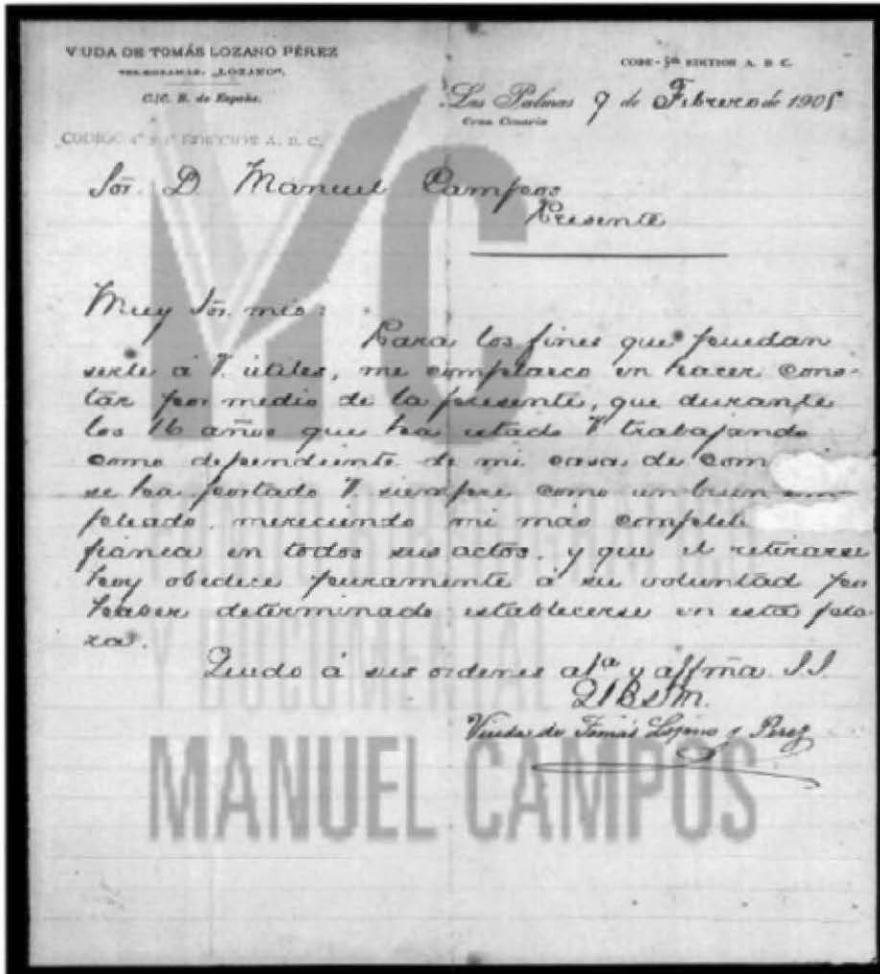 VIUDA DE TOMÁS LOZANO PÉREZ
TELEGRAMAS: „LOZANO",
C/C. B. de España.
CODE - 5th EDITION A. B. C.
Las Palmas 9 de Febrero de 1905
Gran Canaria
CODIGO 4ª y 5ª EDICCION A. B. C.
Sor. D Manuel Campos
Presente
Muy Sor. mio:
Para los fines que puedan
serle á V. útiles, me complazco en hacer cons-
tar por medio de la presente, que durante
los 16 años que ha estado V trabajando
como dependiente de mi casa de com
se ha portado V. siempre como un buen em-
pleado, mereciendo mi más complet
fianza en todos sus actos, y que el retirarse
hoy obedece puramente á su voluntad por
haber determinado establecerse en esta pla-
za.
Quedo á sus ordenes atª y affmª S.S.
Q S B S M.
Viuda de Tomás Lozano y Perez
MC
Y DOCUMENTAL
MANUEL CAMPOS